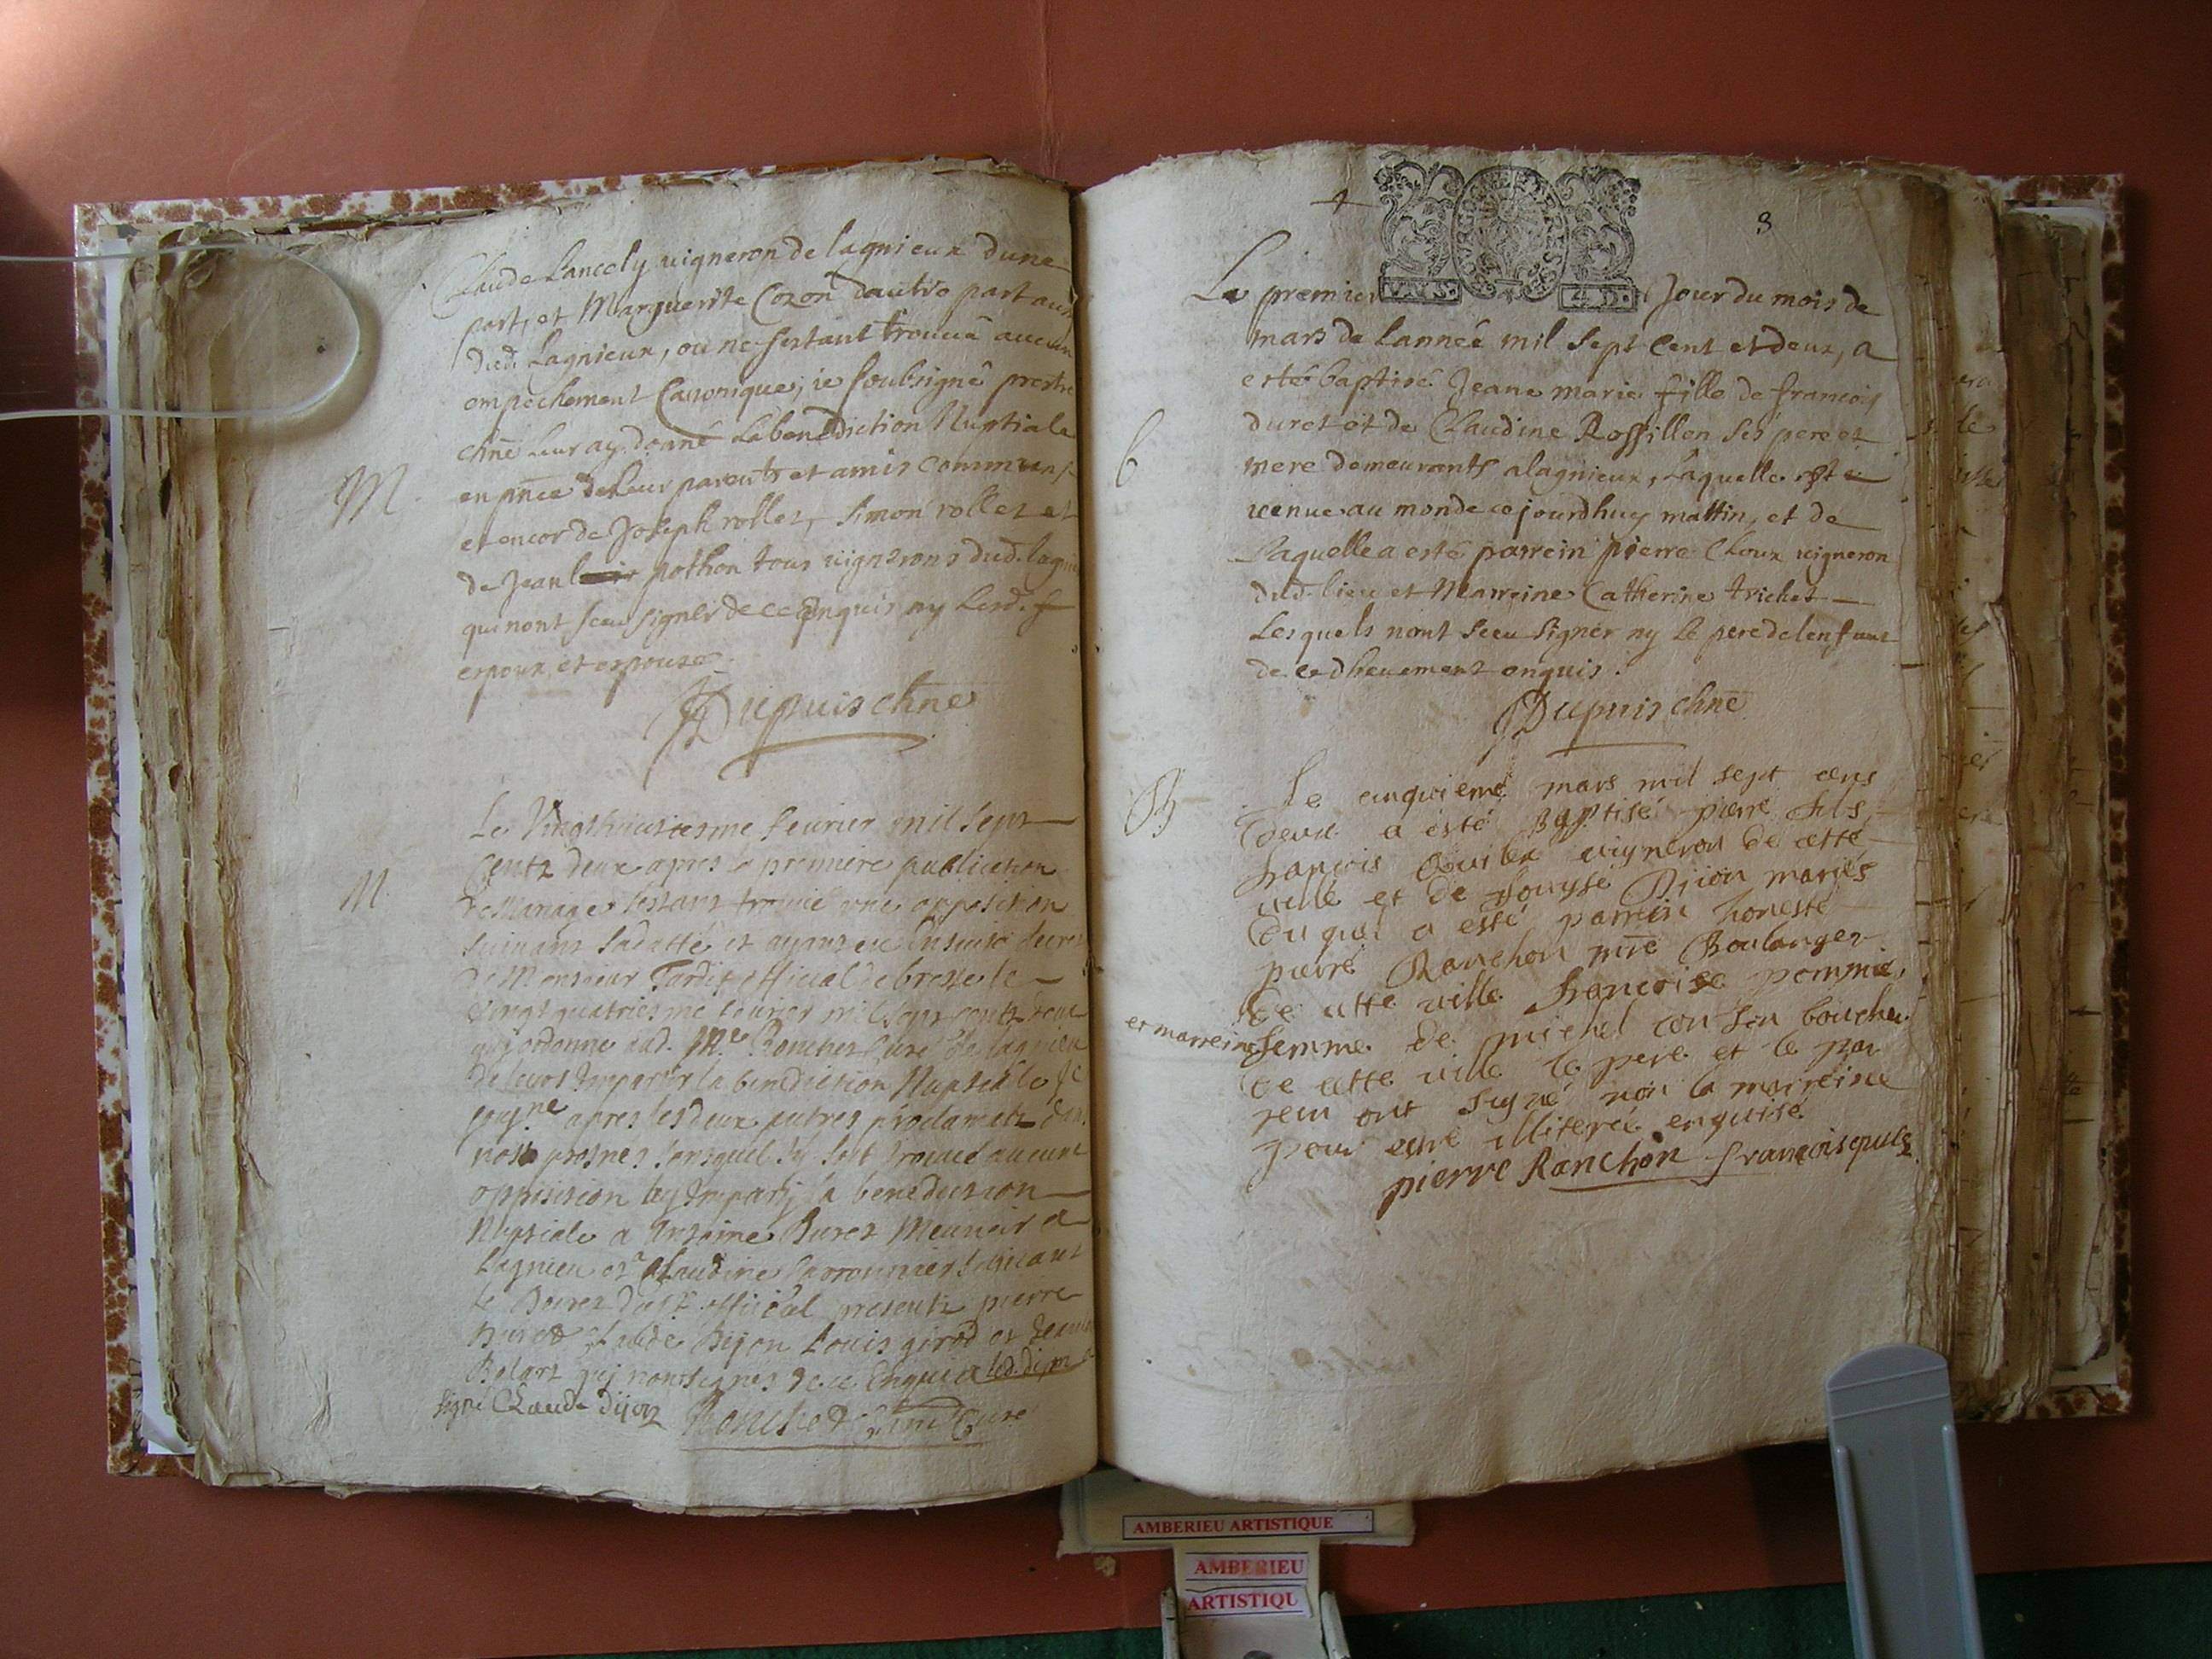 Claude Lancely vigneron de lagnieux dune
part, et Marguerite Cozon dautre part aussi
dud. Lagnieux, ou ne sestant trouvé aucun
empechement Canonique, ie soubsigné prestre
chne leur ay donné la benediction Nuptiale
M.
en pnce de leur parents et amis communs
et encor de Joseph rollet, Simon rollet et
de Jean pothon tous vignerons dud. lagni
qui nont sceu signer de ce enquis ny lesd.
espoux et espouse
Dupuis chne
Le Vingthuictiesme feurier mil sept
Centz deux apres la premiere publication
M.
de Mariage sestant trouvé une opposition
suivant sa datte et ayant eu
de Monsieur Tardif official de bresse le
vingt quatriesme feurier mil sept centz deux
qui ordonne aud. Mre Ronchet Curé de lagnieu
de leurs Impartir la benediction Nuptiale je
apres les deux autres proclamatz
prosnes sans quil sy soit trouvé aucune
opposition ay Imparty la benediction
Nuptiale a Antoine Buret Meunier a
Lagnieu et Claudine suivant
le official presentz pierre
Buret Claude Dijon Louis girod et Jean
qui nont signés de ce Enquis
signé Claude dijon Ronchet Curé
4
3
Le premier Jour du mois de
mars de lanneé mil sept Cent et deux, a
esté baptisé Jeane marie fille de francois
b
duret et de Claudine Rossillon ses pere et
mere demeurants a lagnieux, Laquelle est
venue au monde ce jourdhuy mattin, et de
Laquelle a esté parrein pierre Choux vigneron
dud. lieu et Marreine Catherine trichet
Lesquels nont sceu signer ny le pere de lenfant
de ce dheuement enquis.
Dupuis chne
B
Le cinquieme mars mil sept cens
deux a esté Baptisé pierre fils
francois vigneron de cette
ville et de Louyse Dijon mariés
du quel a esté parrein honeste
pierre Ranchon mre Boulanger
de cette ville francoise pomme,
et marreine femme de michel boucher
de cette ville le pere et le par
rein ont signé non la marreine
pour estre illiterée enquise
pierre Ranchon francois
AMBERIEU ARTISTIQUE
AMBERIEU
ARTISTIQU